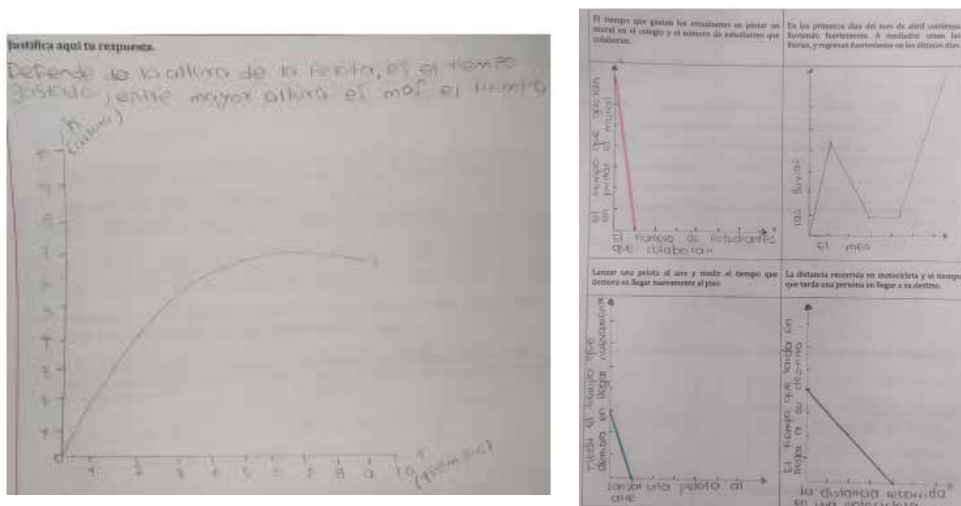 Justifica aquí tu respuesta.
Depende de la altura de la pelota, es el tiempo
gastado, entre mayor altura es mas el tiempo
h
(altura)
1 2 3 4 5 6 7 8 9 10 T
(tiempo)
El tiempo que gastan los estudiantes en pintar un
mural en el colegio y el número de estudiantes que
colaboran.
el tiempo que gastan
en pintar el mural
El numero de estudiantes
que colaboran
En los primeros días del mes de abril comienza
lloviendo fuertemente. A mediados cesan las
lluvias, y regresan fuertemente en los últimos días.
las lluvias
El mes
Lanzar una pelota al aire y medir el tiempo que
demora en llegar nuevamente al piso.
Medir el tiempo que
demora en llegar nuevamente
lanzar una pelota al
aire
La distancia recorrida en motocicleta y el tiempo
que tarda una persona en llegar a su destino.
El tiempo que tarda en
llegar a su destino
la distancia recorrida
en una motocicleta